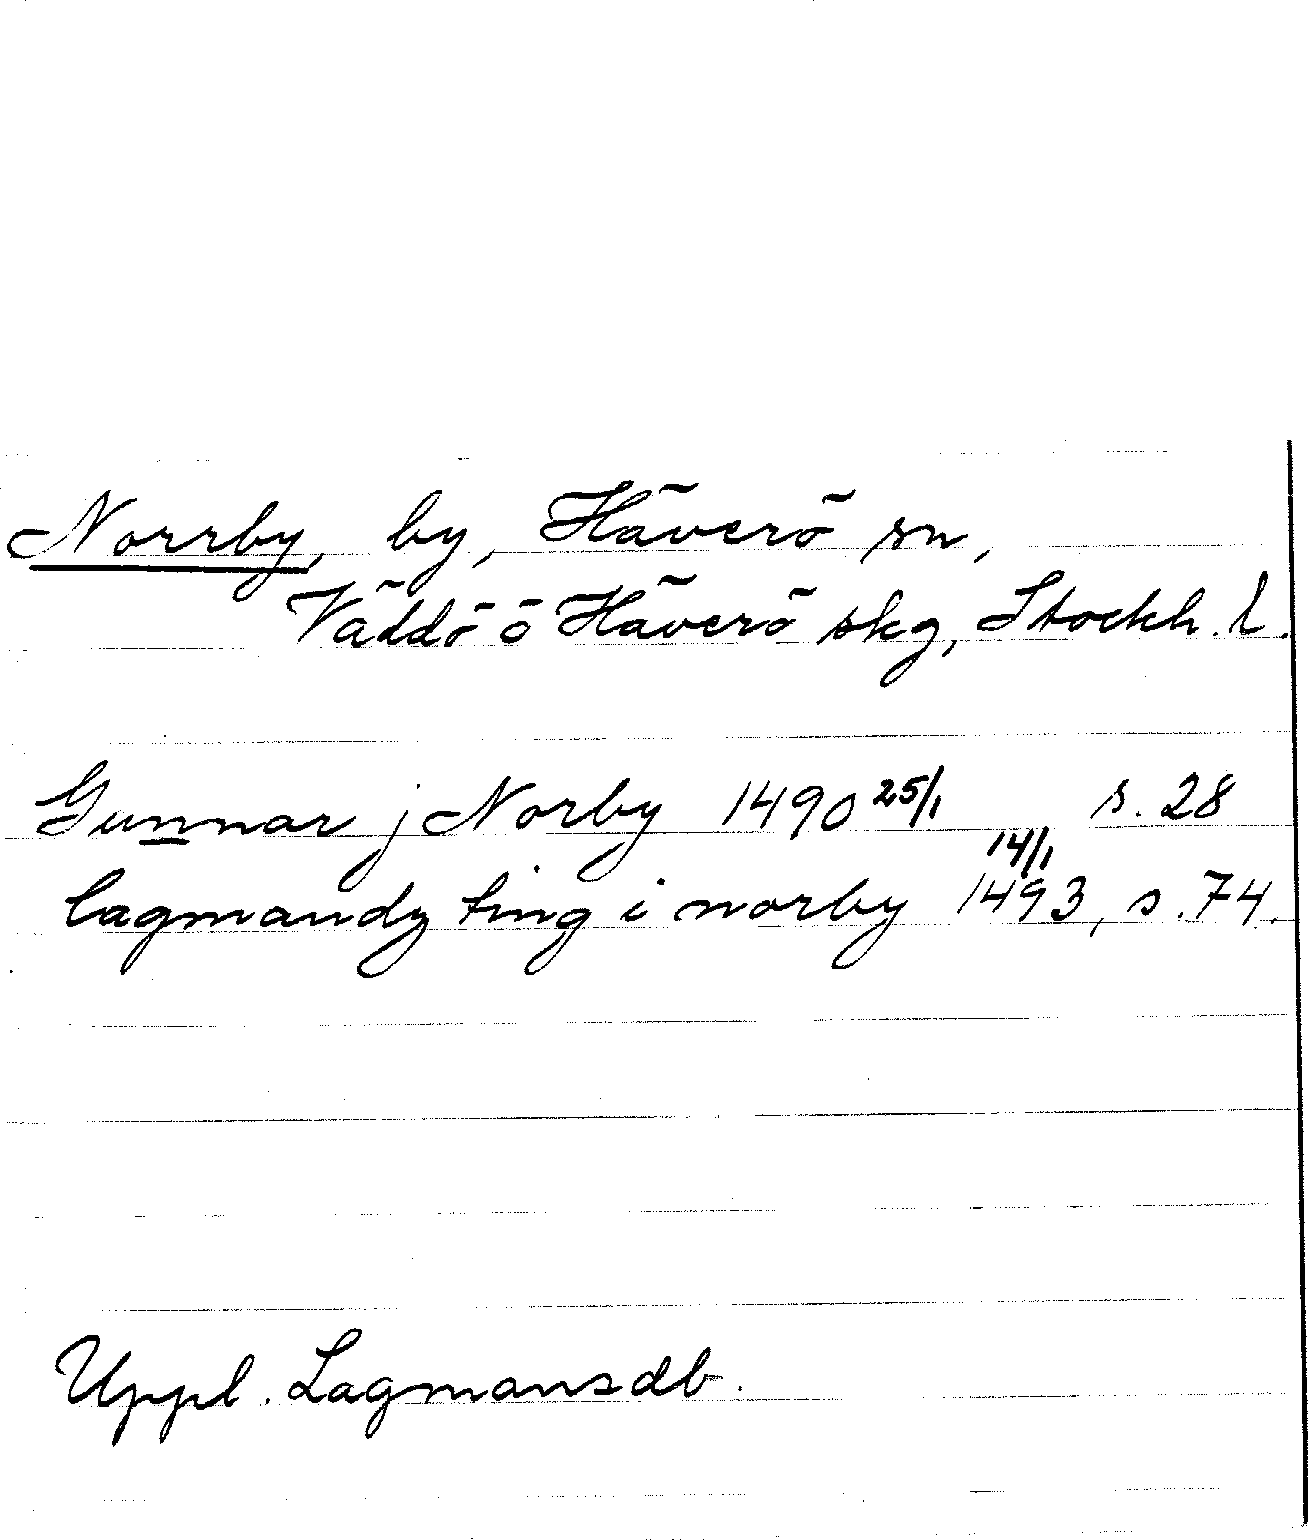 Norrby, by, Häverö sn,
Väddö o Häverö skg, Stockh. l.
Gunnar j Norby 1490 25/1 s. 28
lagmandz ting i norby 1493, 14/1 s. 74.
Uppl. Lagmansdb.